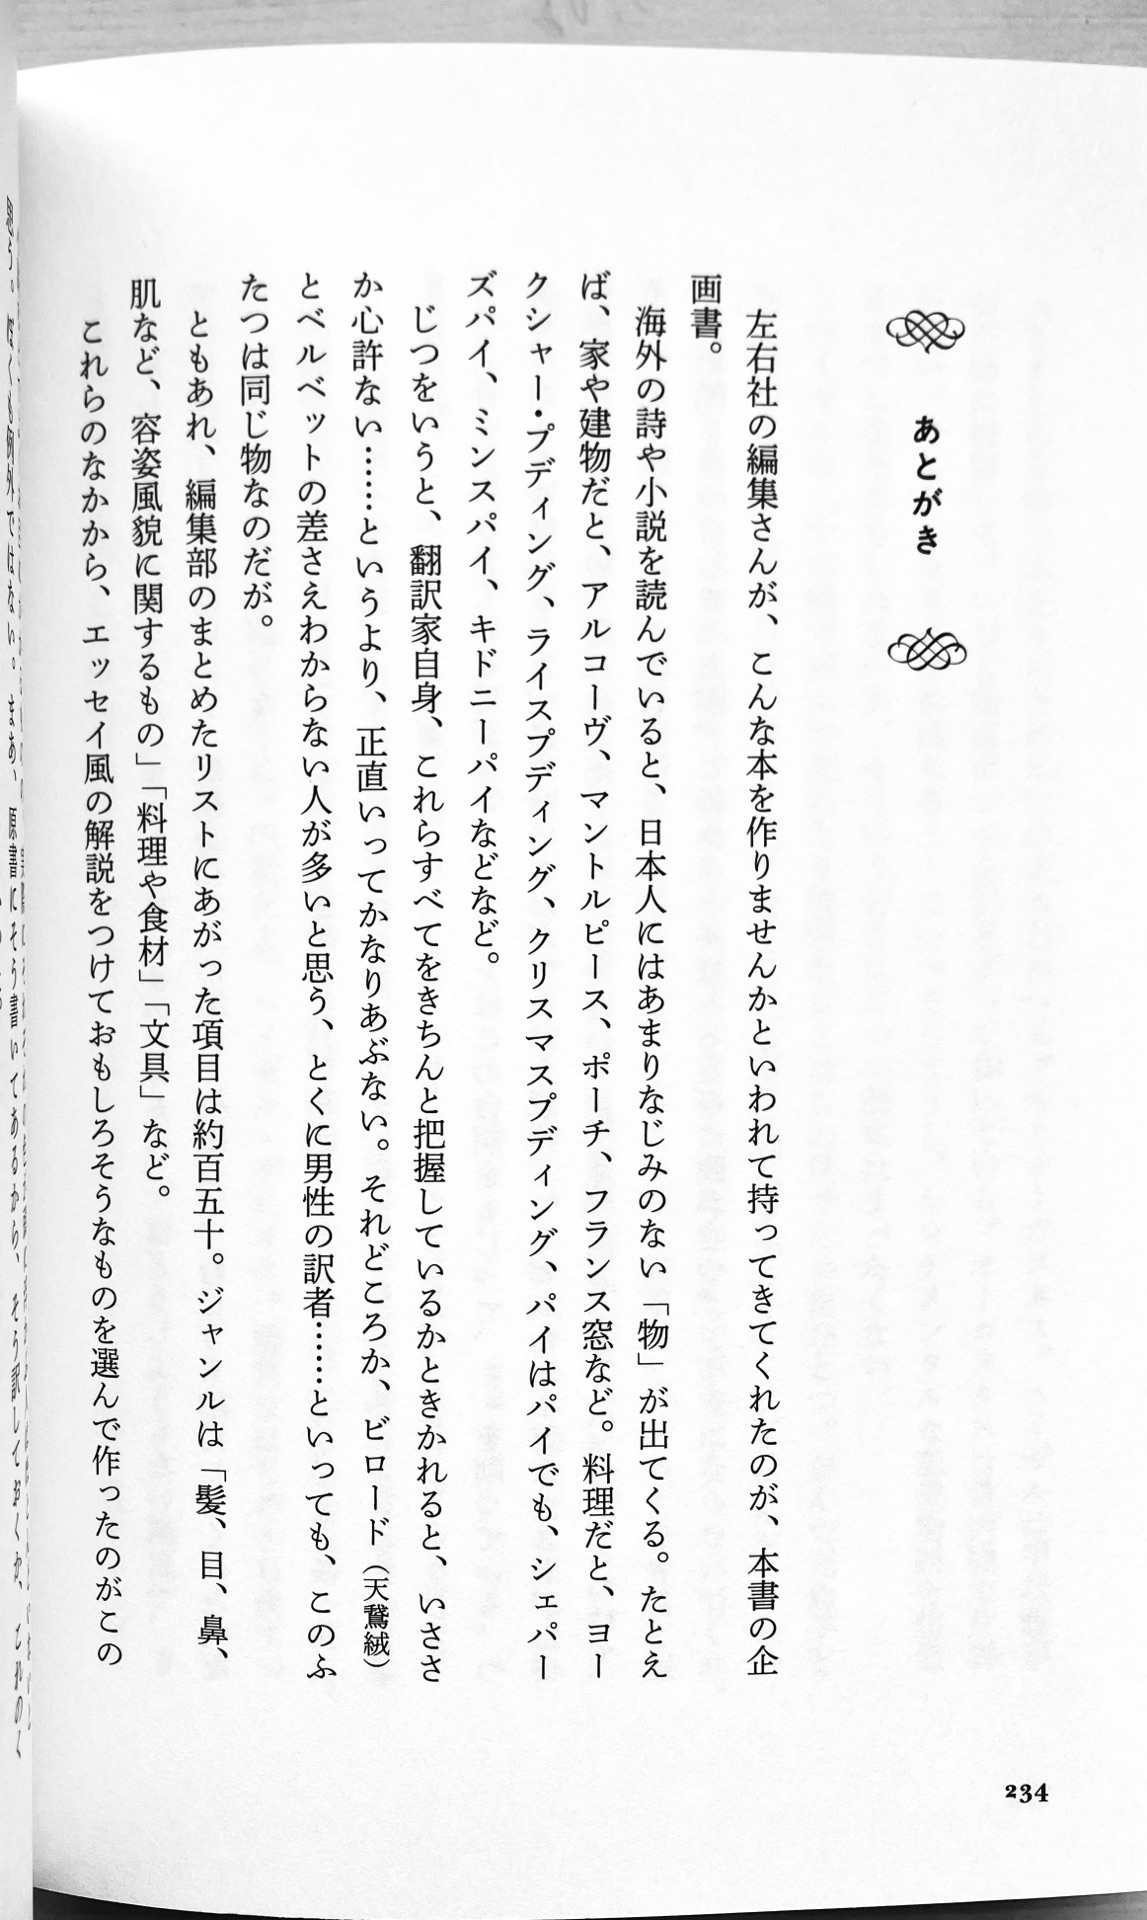 あとがき
左右社の編集さんが、こんな本を作りませんかといわれて持ってきてくれたのが、本書の企
画書。
海外の詩や小説を読んでいると、日本人にはあまりなじみのない「物」が出てくる。たとえ
ば、家や建物だと、アルコーヴ、マントルピース、ポーチ、フランス窓など。料理だと、ヨー
クシャー・プディング、ライスプディング、クリスマスプディング、パイはパイでも、シェパー
ズパイ、ミンスパイ、キドニーパイなどなど。
じつをいうと、翻訳家自身、これらすべてをきちんと把握しているかときかれると、いささ
か心許ない……というより、正直いってかなりあぶない。それどころか、ビロード（天鵞絨）
とベルベットの差さえわからない人が多いと思う、とくに男性の訳者……といっても、このふ
たつは同じ物なのだが。
ともあれ、編集部のまとめたリストにあがった項目は約百五十。ジャンルは「髪、目、鼻、
肌など、容姿風貌に関するもの」「料理や食材」「文具」など。
これらのなかから、エッセイ風の解説をつけておもしろそうなものを選んで作ったのがこの
234
思う。ぼくも例外ではない。まあ、原書にそう書いてあるから、そう訳しておくか、